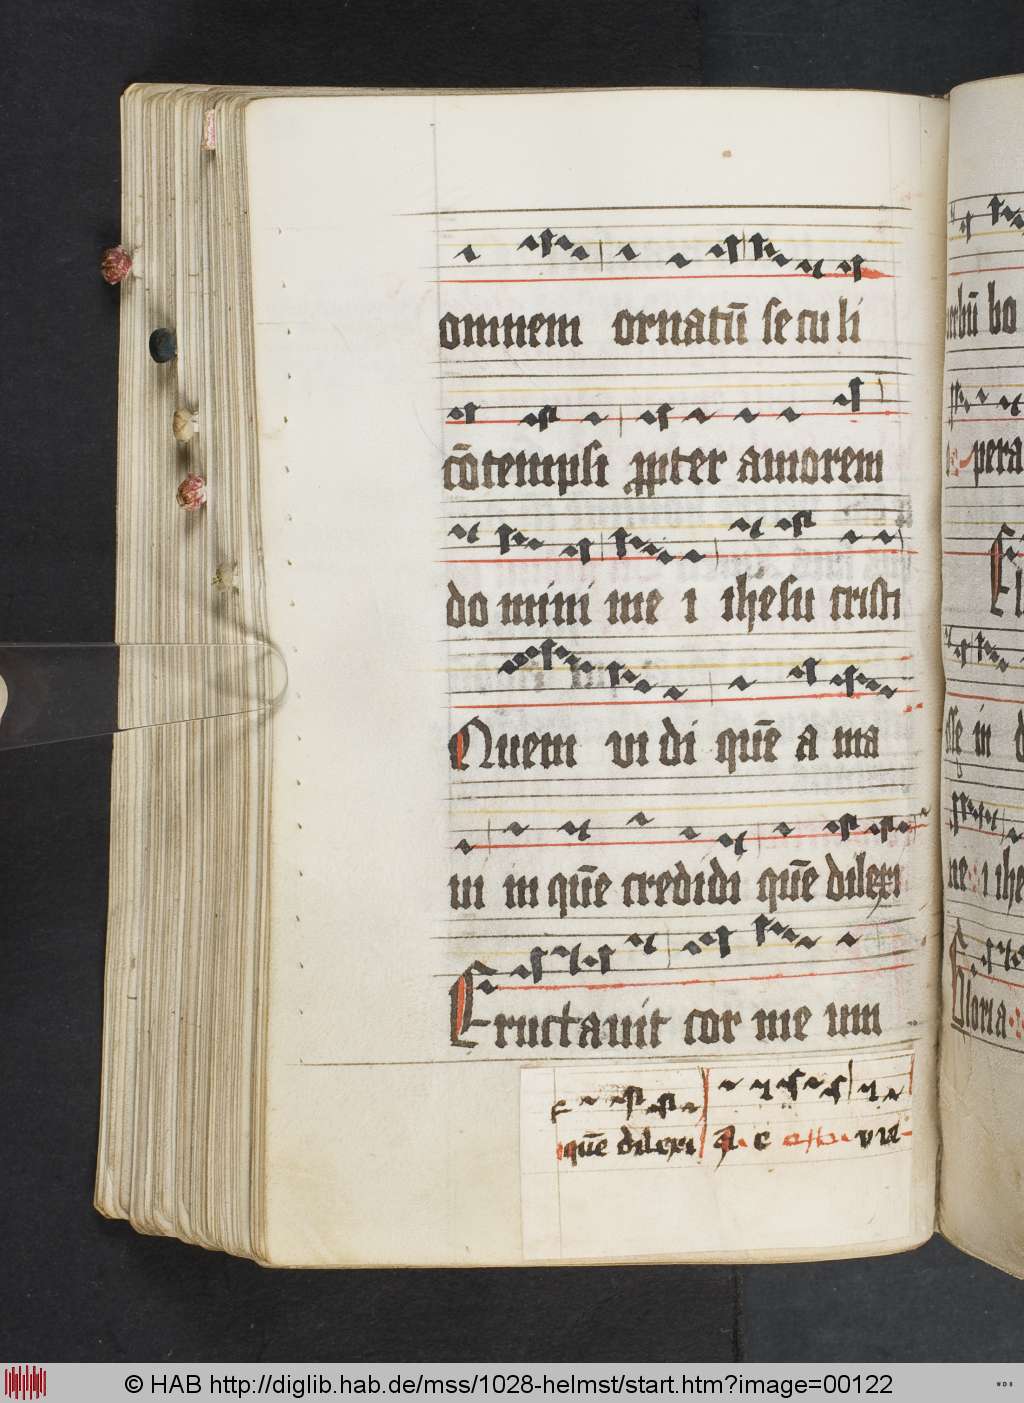 omnem ornatū seculi
cōtempsi ppter amorem
domini me i ihesu cristi
Quem vidi quē a ma
ui in quē credidi quē dilexi
Eructauit cor me um
quē dilexi A. e
pera
Gloria
© HAB http://diglib.hab.de/mss/1028-helmst/start.htm?image=00122